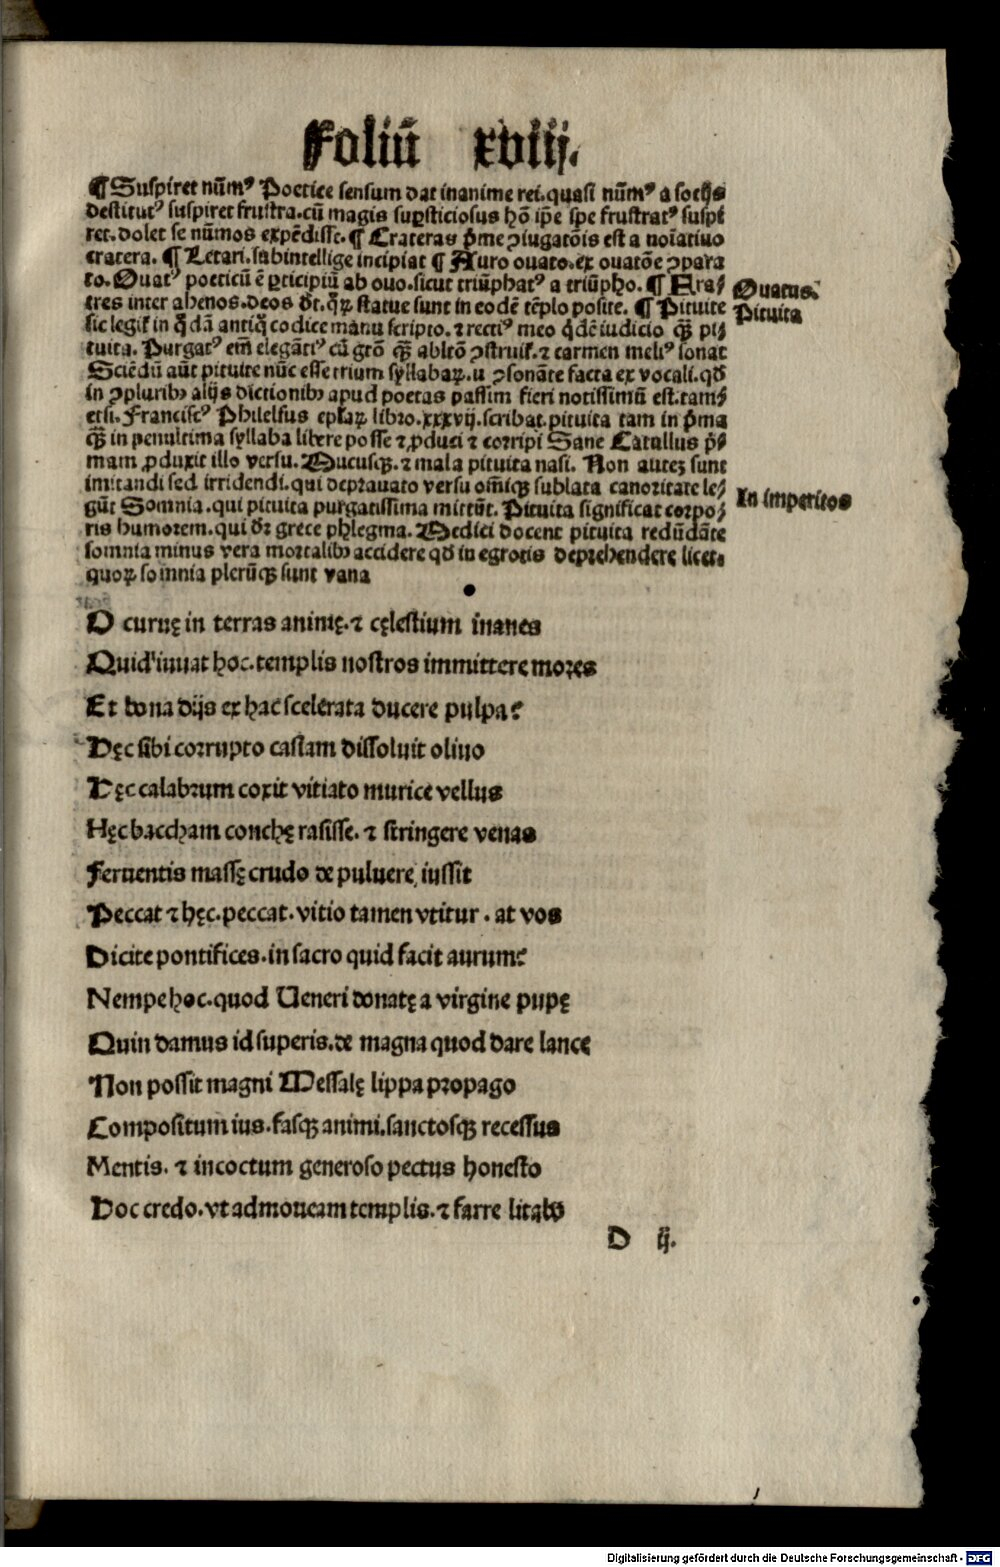 Foliũ xviij.
¶ Suspiret nũmꝰ Poetice sensum dat inanime rei. quasi nũmꝰ a socijs
destitutꝰ suspiret frustra. cũ magis suꝑsticiosus hõ ip̃e spe frustratꝰ suspi
ret. dolet se nũmos expẽdisse. ¶ Crateras p̃me ꝯiugatõis est a noĩatiuo
cratera. ¶ Letari. subintellige incipiat ¶ Auro ouato. ex ouatõe ꝯpara
to. Ouatꝰ poeticũ ẽ ꝑticipiũ ab ouo. sicut triũphatꝰ a triũpho. ¶ Fra⸗
tres inter ahenos. deos dr̃t. qꝝ statue sunt in eodẽ tẽplo posite. ¶ Pituite
sic legit̃ in q̃dã antiq̃ codice manu scripto. ⁊ rectiꝰ meo q̃dẽ iudicio q̃ꝫ pi⸗
tuita. Purgatꝰ em̃ elegãtiꝰ cũ gtõ q̃ꝫ abltõ ꝯstruit̃. ⁊ carmen meliꝰ sonat
Sciẽdũ aũt pituite nũc esse trium syllabaꝝ. u ꝯsonãte facta ex vocali. qd̃
in ꝯpluribꝰ alijs dictionibꝰ apud poetas passim fieri notissimũ est. tam⸗
etsi. Franciscꝰ Philelfus ep̃laꝝ libro. xxxvij. scribat. pituita tam in p̃ma
q̃ꝫ in penultima syllaba libere posse ⁊ ꝓduci ⁊ corripi Sane Catullus p̃⸗
mam ꝓduxit illo versu. Mucusqꝫ. ⁊ mala pituita nasi. Non auteꝫ sunt
imitandi sed irridendi. qui deprauato versu om̃iqꝫ sublata canoritate le⸗
gũt Somnia. qui pituita purgatissima mittũt. Pituita significat corpo⸗
ris humorem. qui dr̃ grece phlegma. Medici docent pituita redũdãte
somnia minus vera mortalibꝰ accidere qd̃ in egrotis deprehendere licet.
quoꝝ somnia plerũqꝫ sunt vana
Ouatus.
Pituita
In imperitos
O curuę in terras animę. ⁊ cęlestium inanes
Quid iuuat hoc. templis nostros immittere mores
Et bona dijs ex hac scelerata ducere pulpa?
Hęc sibi corrupto casiam dissoluit oliuo
Hęc calabrum coxit vitiato murice vellus
Hęc baccham conchę rasisse. ⁊ stringere venas
Feruentis massę crudo de puluere iussit
Peccat ⁊ hęc. peccat. vitio tamen vtitur. at vos
Dicite pontifices. in sacro quid facit aurum?
Nempe hoc. quod Ueneri donatę a virgine pupę
Quin damus id superis. de magna quod dare lance
Non possit magni Messalę lippa propago
Compositum ius. fasqꝫ animi. sanctosqꝫ recessus
Mentis. ⁊ incoctum generoso pectus honesto
Hoc cedo. vt admoueam templis. ⁊ farre litabo
D ij.
Digitalisierung gefördert durch die Deutsche Forschungsgemeinschaft - DFG